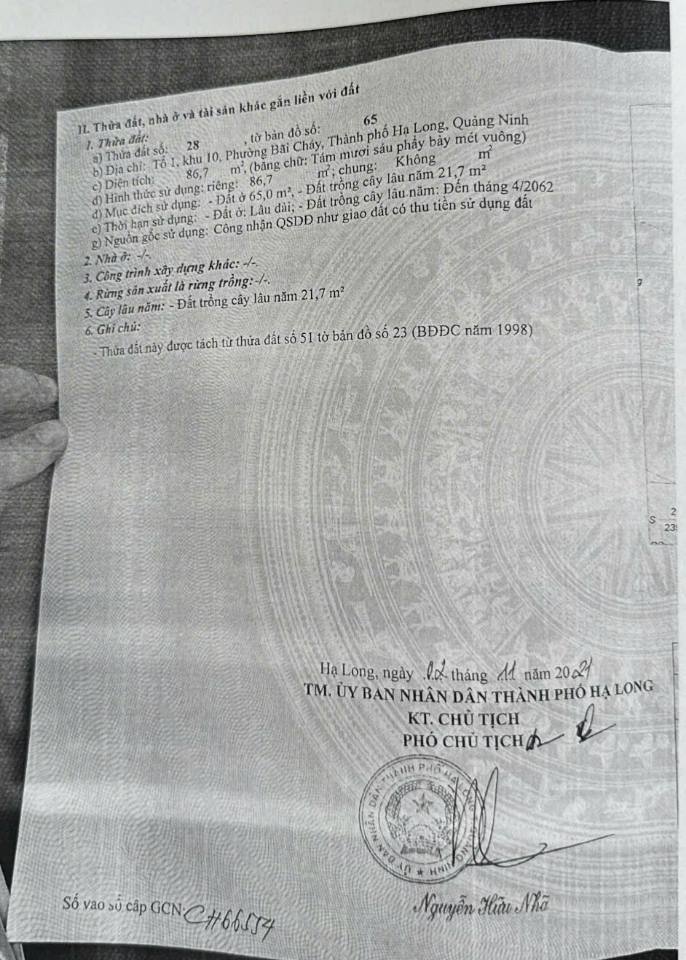 II. Thửa đất, nhà ở và tài sản khác gắn liền với đất
1. Thửa đất:
a) Thửa đất số: 28 , tờ bản đồ số: 65
b) Địa chỉ: Tổ 1, khu 10, Phường Bãi Cháy, Thành phố Hạ Long, Quảng Ninh
c) Diện tích: 86,7 m², (bằng chữ: Tám mươi sáu phẩy bảy mét vuông)
d) Hình thức sử dụng: riêng: 86,7 m²; chung: Không m²
đ) Mục đích sử dụng: - Đất ở 65,0 m², - Đất trồng cây lâu năm 21,7 m²
e) Thời hạn sử dụng: - Đất ở: Lâu dài; - Đất trồng cây lâu năm: Đến tháng 4/2062
g) Nguồn gốc sử dụng: Công nhận QSDĐ như giao đất có thu tiền sử dụng đất
2. Nhà ở: -/-.
3. Công trình xây dựng khác: -/-.
4. Rừng sản xuất là rừng trồng:-/-.
5. Cây lâu năm: - Đất trồng cây lâu năm 21,7 m²
6. Ghi chú:
- Thửa đất này được tách từ thửa đất số 51 tờ bản đồ số 23 (BĐĐC năm 1998)
S 2
23
Hạ Long, ngày 02 tháng 11 năm 2021
TM. ỦY BAN NHÂN DÂN THÀNH PHỐ HẠ LONG
KT. CHỦ TỊCH
PHÓ CHỦ TỊCH
ỦY BAN NHÂN DÂN THÀNH PHỐ HẠ LONG ★ QUẢNG NINH
Nguyễn Hữu Nhã
Số vào sổ cấp GCN: CH66554